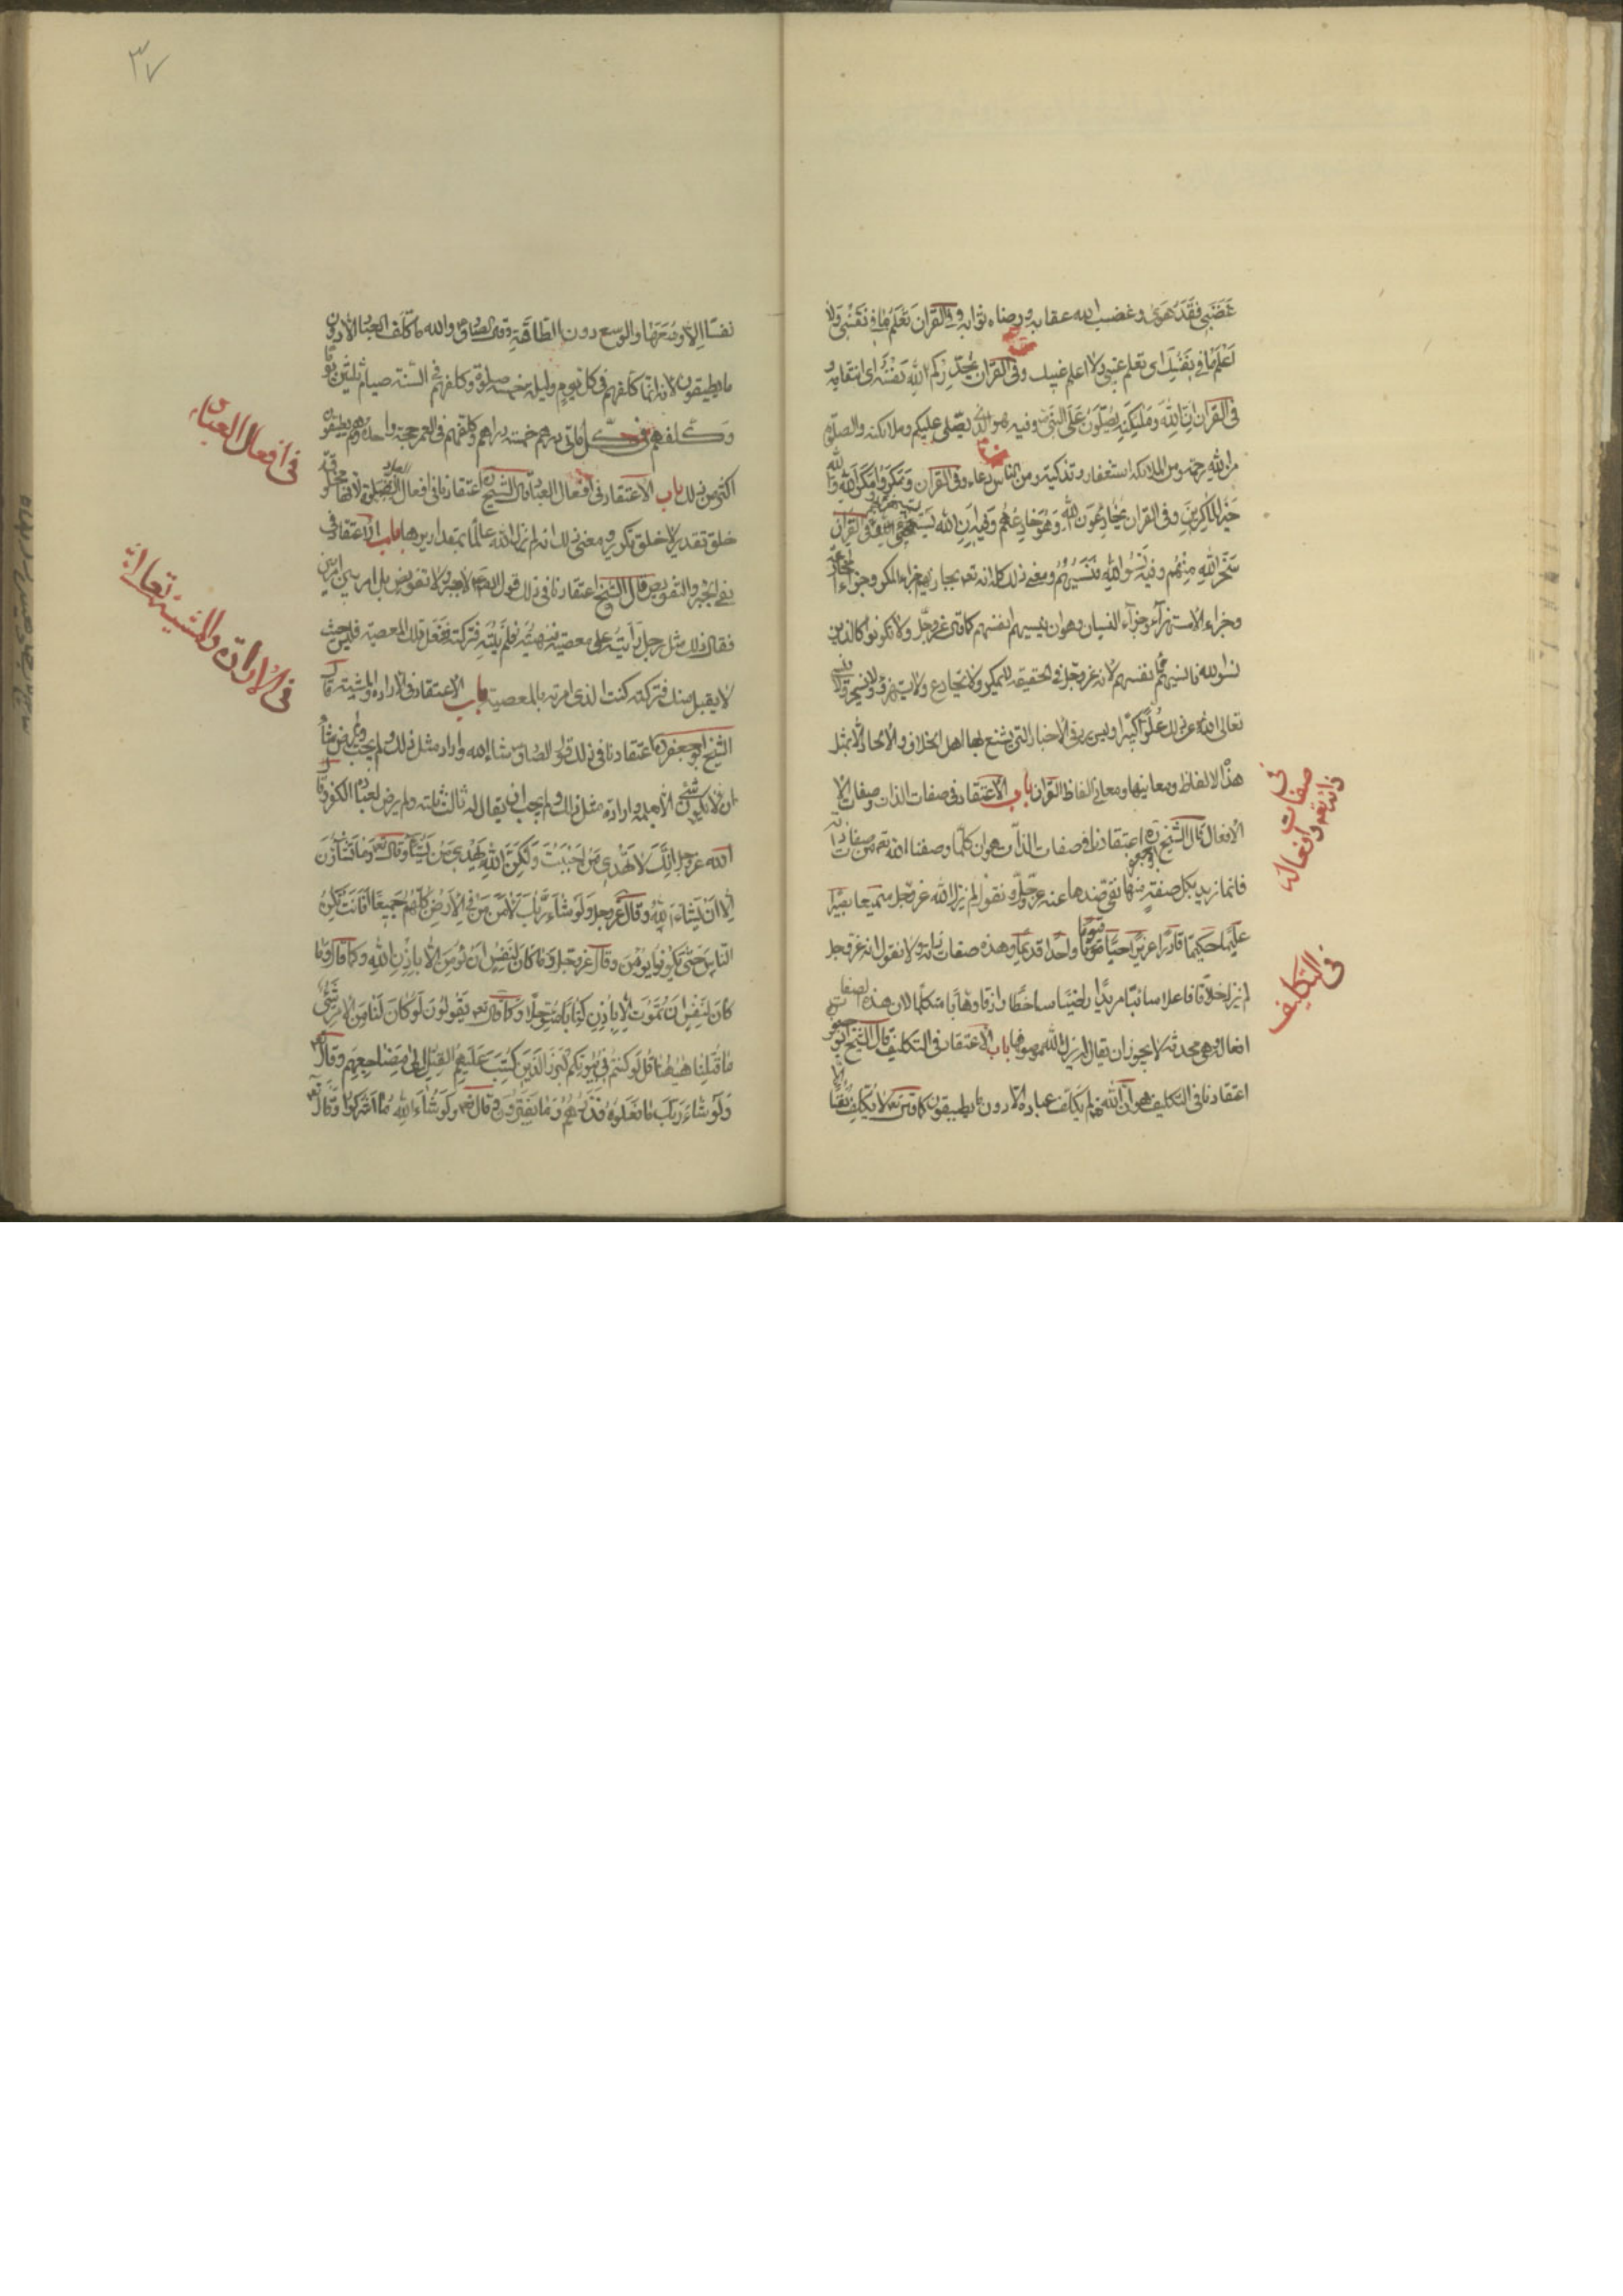 غَضَبِي فَقَدْ هَوىٰ وغضب الله عقابه ورضاه ثوابه وفي القرآن تَعْلَمُ مَا فِي نَفْسِي وَلَا
أَعْلَمُ مَا فِي نَفْسِكَ اى تعلم غيبي ولا اعلم غيبك وفى القرآن يُحَذِّرُكُمُ اللهُ نَفْسَهُ اى انتقامه و
فى القرآن إِنَّ اللهَ وَمَلٰئِكَتَهُ يُصَلُّونَ عَلَى النَّبِيِّ وفيه هو الذى يصلى عليكم وملائكته والصلوة
من الله رحمة ومن الملائكة استغفار وتذكية ومن الناس دعاء وفى القرآن وَمَكَرُوا وَمَكَرَ اللهُ وَاللهُ
خَيْرُ الْمَاكِرِينَ وفى القرآن يُخَادِعُونَ اللهَ وَهُوَ خَادِعُهُمْ وفيه اللهُ يَسْتَهْزِئُ بِهِمْ وفى القرآن
سَخِرَ اللهُ مِنْهُمْ وفيه نَسُوا اللهَ فَنَسِيَهُمْ ومعنى ذلك كله انه تعالى يجازيهم جزاء المكر وجزاء المخادعة
وجزاء الاستهزآء وجزآء النسيان وهو ان ينسيهم انفسهم كما قال عزوجل ولا تكونوا كالذين
نسوا الله فانسيهم انفسهم لانه عزوجل فى الحقيقه لا يمكر ولا يخادع ولا يستهزء ولا يسخر ولا ينسى
تعالى الله عن ذلك عُلُوًّا كبيرا وليس يرد فى الاخبار التى يشنع بها اهل الخلاف والالحاد الا بمثل
هذه الالفاظ ومعانيها ومعانى الفاظ القرآن باب الاعتقاد فى صفات الذات وصفات الا
الافعال قال الشيخ ابو جعفر ره اعتقادنا فى صفات الذات هو ان كلما وصفنا الله تعالى من صفات ذاته
فانما نريد بكل صفة منها نفى ضدها عنه عزوجل ونقول لم يزل الله عزوجل سميعا بصيرا
عليما حكيما قادرا عزيزا حيا قيوما واحدا قديما وهذه صفات ذاته ولا نقول انه عزوجل
لم يزل خلاقا فاعلا شائيا مريدا راضيا ساخطا رازقا وهابا متكلما لان هذه الصفات
افعاله وهى محدثه لا يجوز ان يقال لم يزل الله موصوفا بها باب الاعتقاد فى التكليف قال الشيخ ابو جعفر
اعتقادنا فى التكليف هو ان الله تعالى لم يكلف عباده الا دون ما يطيقون كما قال تعالى لا يكلف الله نفسا
في صفات
ذاته تعالى وافعاله
فى التكليف
٣٧
نفسا إلا وسعها والوسع دون الطاقة وقال الصادق والله ما كلف العباد الا دون
ما يطيقون لانه انما كلفهم فى كل يوم وليلة خمس صلوة وكلفهم فى السنة صيام ثلثين يوما
وكلفهم فى كل مأتى درهم خمسة دراهم وكلفهم فى العمر حجة واحدة وهم يطيقون
اكثر من ذلك باب الاعتقاد فى افعال العباد قال الشيخ اعتقادنا فى افعال العباد انها مخلوقة
خلق تقدير لا خلق تكوين ومعنى ذلك انه لم يزل الله عالما بمقاديرها باب الاعتقاد فى
نفى الجبر والتفويض قال الشيخ اعتقادنا فى ذلك قول الصادق لا جبر ولا تفويض بل امر بين امرين
فقال ذلك مثل رجل رايته على معصية فنهيته فلم ينته فتركته ففعل تلك المعصية فليس حيث
لا يقبل منك فتركته كنت الذى امرته بالمعصية باب الاعتقاد فى الاراده والمشية قال
الشيخ ابو جعفر ره اعتقادنا فى ذلك قول الصادق شاء الله واراد مثل ذلك ولم يحب ولم يرض شاء
ان لا يكون شىء الا بعلمه واراد مثل ذلك ولم يحب ان يقال له ثالث ثلثه ولم يرض لعباده الكفر وقال
الله عزوجل إِنَّكَ لَا تَهْدِي مَنْ أَحْبَبْتَ وَلٰكِنَّ اللهَ يَهْدِي مَنْ يَشَاءُ وقال تعالى وَمَا تَشَاؤُنَ
إِلَّا أَنْ يَشَاءَ اللهُ وقال عزوجل وَلَوْ شَاءَ رَبُّكَ لَآمَنَ مَنْ فِي الْأَرْضِ كُلُّهُمْ جَمِيعًا أَفَأَنْتَ تُكْرِهُ
النَّاسَ حَتَّى يَكُونُوا مُؤْمِنِينَ وقال عزوجل وَمَا كَانَ لِنَفْسٍ أَنْ تُؤْمِنَ إِلَّا بِإِذْنِ اللهِ وكما قال وَمَا
كَانَ لِنَفْسٍ أَنْ تَمُوتَ إِلَّا بِإِذْنِ اللهِ كِتَابًا مُؤَجَّلًا وكما قال تعالى يَقُولُونَ لَوْ كَانَ لَنَا مِنَ الْأَمْرِ شَيْءٌ
مَا قُتِلْنَا هٰهُنَا قُلْ لَوْ كُنْتُمْ فِي بُيُوتِكُمْ لَبَرَزَ الَّذِينَ كُتِبَ عَلَيْهِمُ الْقَتْلُ إِلَى مَضَاجِعِهِمْ وقال
وَلَوْ شَاءَ رَبُّكَ مَا فَعَلُوهُ فَذَرْهُمْ وَمَا يَفْتَرُونَ وقال تعالى وَلَوْ شَاءَ اللهُ مَا أَشْرَكُوا وقال
فى افعال العباد
فى الارادة والمشية تعالى